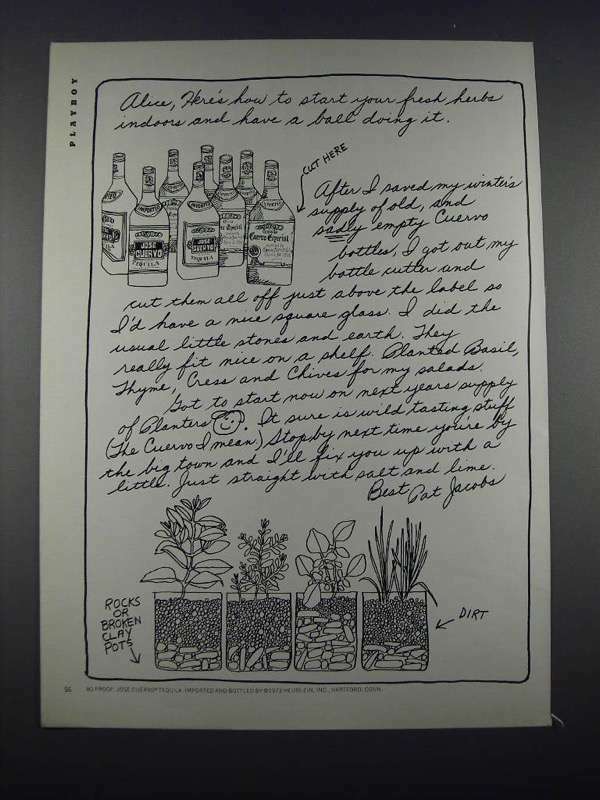 PLAYBOY
Alice, Here's how to start your fresh herbs
indoors and have a ball doing it.
CUT HERE
After I saved my winter's
supply of old, and
sadly empty Cuervo
bottles, I got out my
bottle cutter and
cut them all off just above the label so
I'd have a nice square glass. I did the
usual little stones and earth. They
really fit nice on a shelf. Planted Basil,
Thyme, Cress and Chives for my salads.
Got to start now on next years supply
of Planters. It sure is wild tasting stuff
(The Cuervo I mean.) Stop by next time you're by
the big town and I'll fix you up with a
little. Just straight with salt and lime.
Best Pat Jacobs
JOSE
CUERVO
TEQUILA
JOSE
CUERVO
TEQUILA
Cuervo Especial
ROCKS
OR
BROKEN
CLAY
POTS
DIRT
56 80 PROOF. JOSE CUERVO® TEQUILA. IMPORTED AND BOTTLED BY © 1972 HEUBLEIN, INC., HARTFORD, CONN.